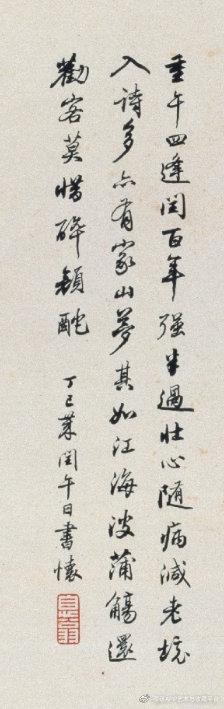 重午四逢閏百年强半過壯心隨病減老境
入詩多亦有家山夢其如江海波蒲觴還
勸客莫惜醉顏酡 丁巳閏午日書懷